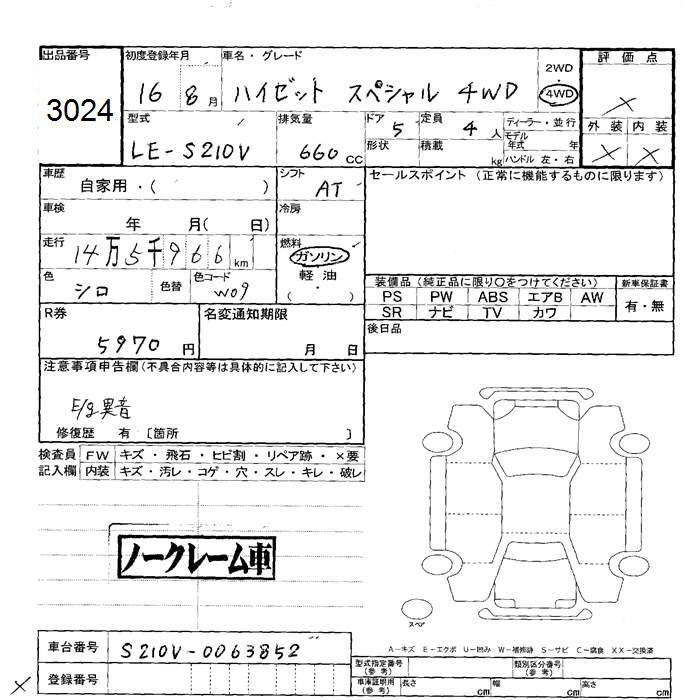 出品番号 初度登録年月 車名・グレード 2WD 4WD 評価点
3024 16 8月 ハイゼット スペシャル 4WD ×
型式 排気量 ドア 5 定員 4人 ディーラー・並行 外装 内装
LE-S210V 660cc 形状 積載 kg モデル年式 年 × ×
ハンドル 左・右
車歴 シフト セールスポイント (正常に機能するものに限ります)
自家用・( ) AT
車検 冷房
年 月( 日)
走行 燃料
14万5千966km ガソリン
色 色替 色コード 軽油
シロ W09 ( ・ )
装備品 (純正品に限り○をつけてください) 新車保証書
PS PW ABS エアB AW 有・無
SR ナビ TV カワ
R券 名変通知期限 後日品
5970円 月 日
注意事項申告欄(不具合内容等は具体的に記入して下さい)
E/g異音
修復歴 有 〔箇所 〕
検査員 FW キズ・飛石・ヒビ割・リペア跡・×要
記入欄 内装 キズ・汚レ・コゲ・穴・スレ・キレ・破レ
ノークレーム車
スペア
A-キズ E-エクボ U-凹み W-補修跡 S-サビ C-腐食 XX-交換済
車台番号 S210V-0063852
型式指定番号(参考) 類別区分番号(参考)
× 登録番号
車庫証明用(参考) 長さ cm 幅 cm 高さ cm